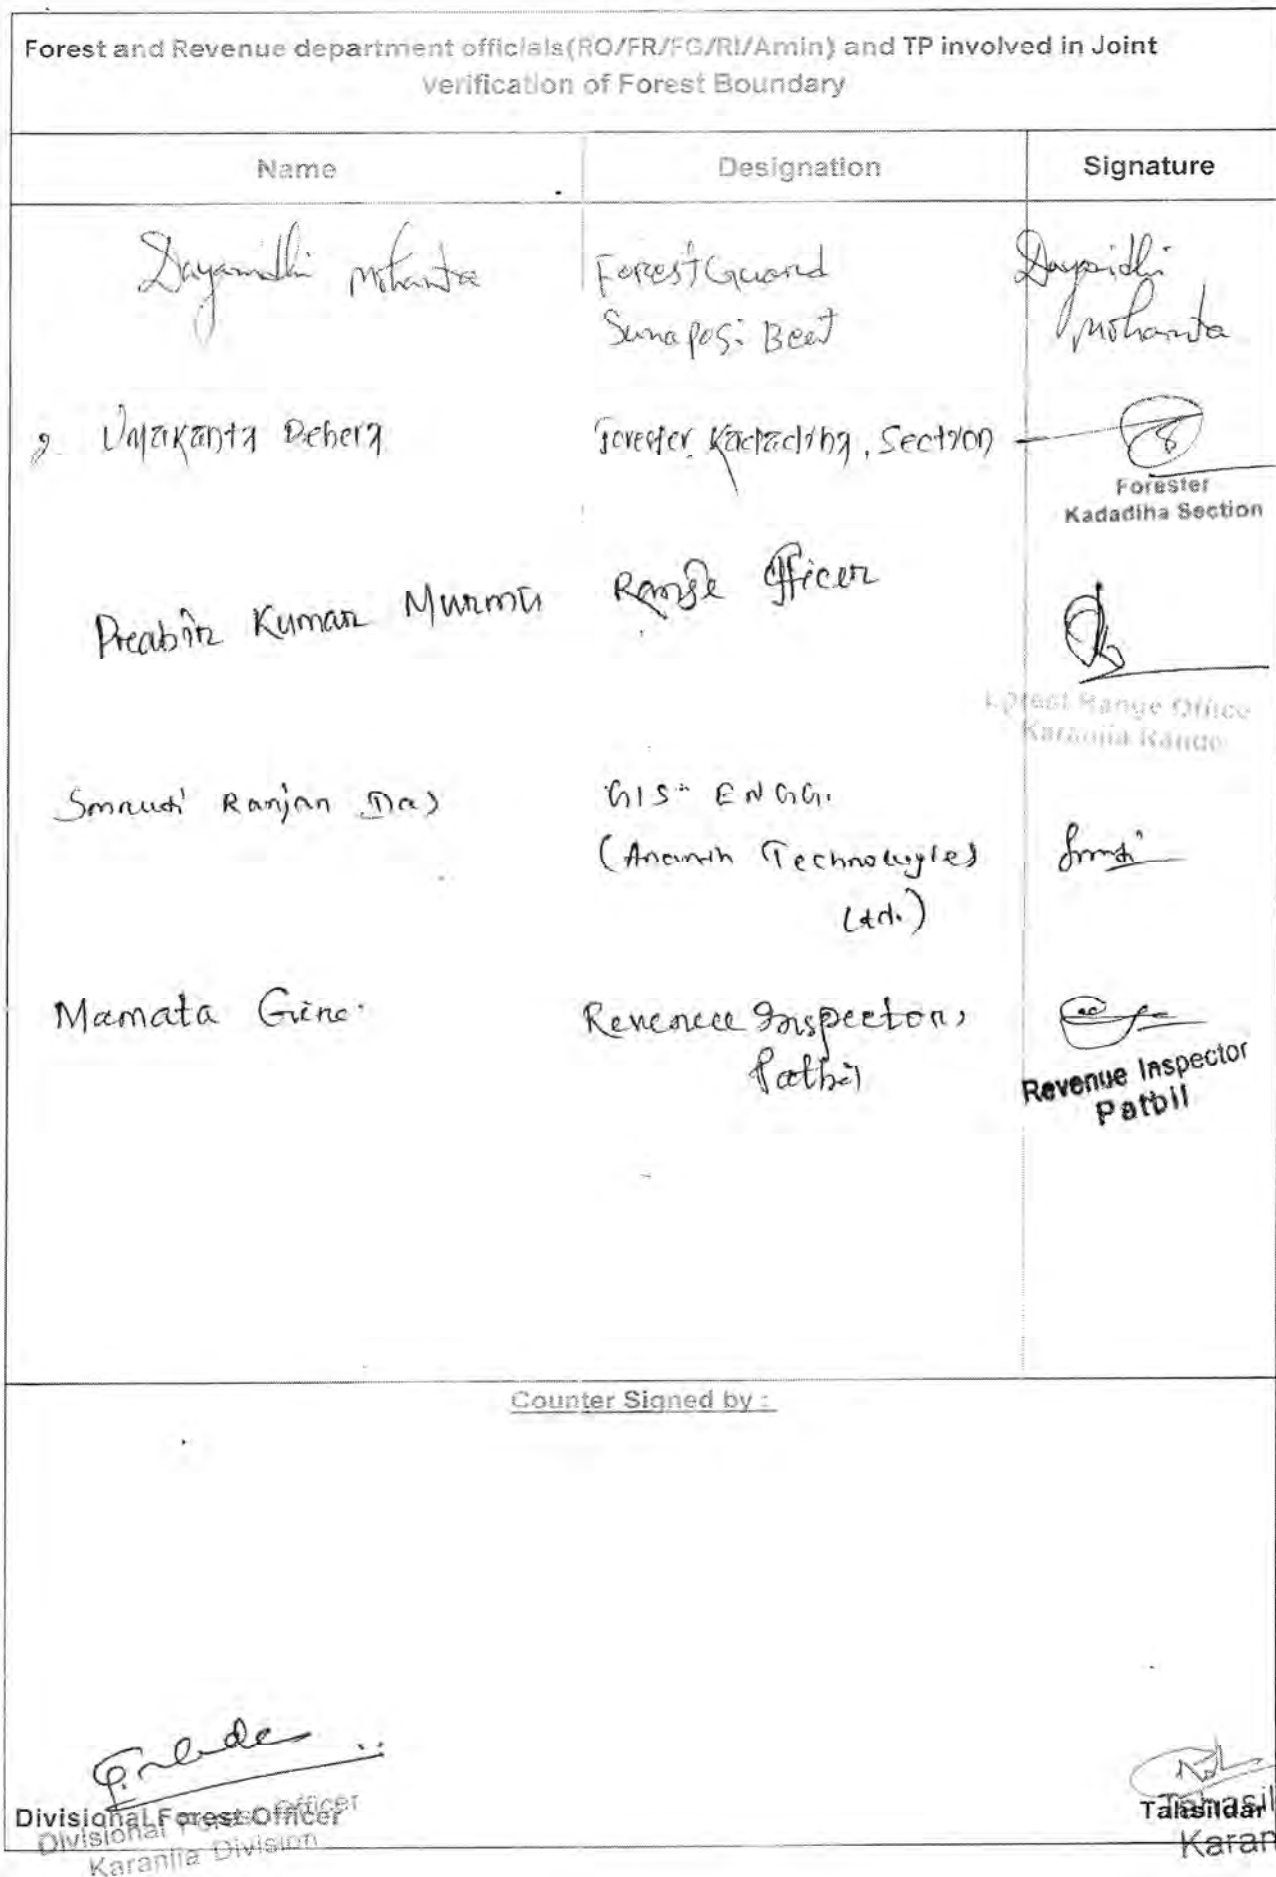 Forest and Revenue department officials(RO/FR/FG/RI/Amin) and TP involved in Joint
verification of Forest Boundary
Name Designation Signature
Dayanidhi Mohanta Forest Guard Dayanidhi
Sunaposi Beat Mohanta
2. Umakanta Behera Forester Kadadiha, Section
Forester
Kadadiha Section
Prabin Kumar Murmu Range Officer
Forest Range Office
Karanjia Range
Smruti Ranjan Das GIS- ENGG.
(Technologies Smruti
Ltd.)
Mamata Revenue Inspector,
Patbil
Revenue Inspector
Patbil
Counter Signed by :
Divisional Forest Officer Tahsildar
Divisional Forest Officer Tahasil
Karanjia Division Karan